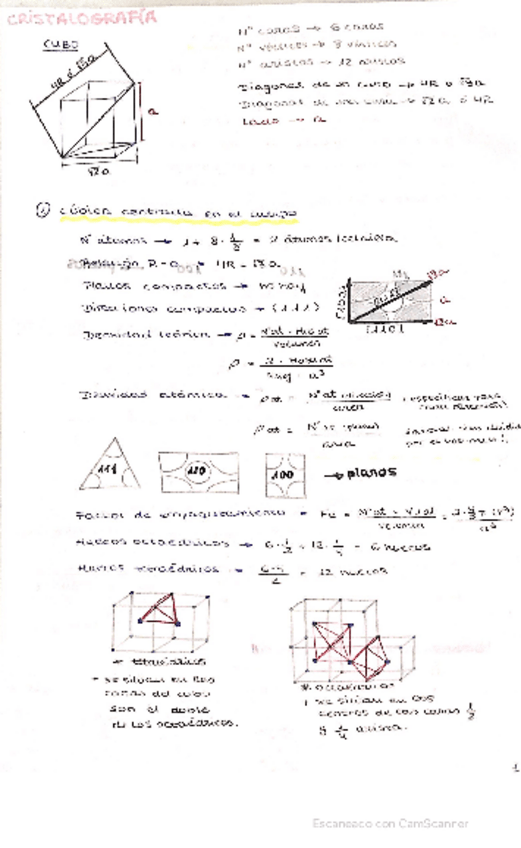 CRISTALOGRAFÍA
CUBO
Nº caras → 6 caras
Nº vértices → 8 vértices
Nº aristas → 12 aristas
Diagonal de un cubo → 4R o √3a
Diagonal de una cara → √2a o 4R
Lado → a
4R o √3a
a
√2a
① Cúbica centrada en el cuerpo
Nº átomos → 1 + 8 · 1/8 = 2 átomos/celdilla
Relación R-a → 4R = √3a
Planos compactos → no hay
Direcciones compactas → (111)
a
√2a
[110]
Densidad teórica → ρ = Nºat · Masa at / volumen
Densidad atómica → ρat = Nº at / área
área
111
110
100
→ planos
Factor de empaquetamiento = Fe = Nºat · Vat / volumen
Huecos octaédricos → 6 · 1/2 + 12 · 1/4 = 6 huecos
Huecos tetraédricos → = 12 huecos
* tetraédricos
* se sitúan en las
caras del cubo
son el doble
de los octaédricos.
* octaédricos
* se sitúan en los
centros de las caras 1/2
y 1/4 arista.
1
Escaneado con CamScanner